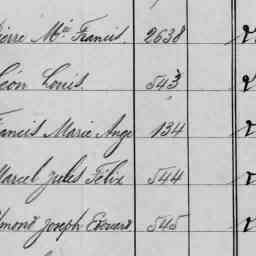 ierre Mie Francis. 2638
éon Louis. 543
rancis Marie Ange 134
Marcel Jules Félix 544
dmond Joseph Edouard 545